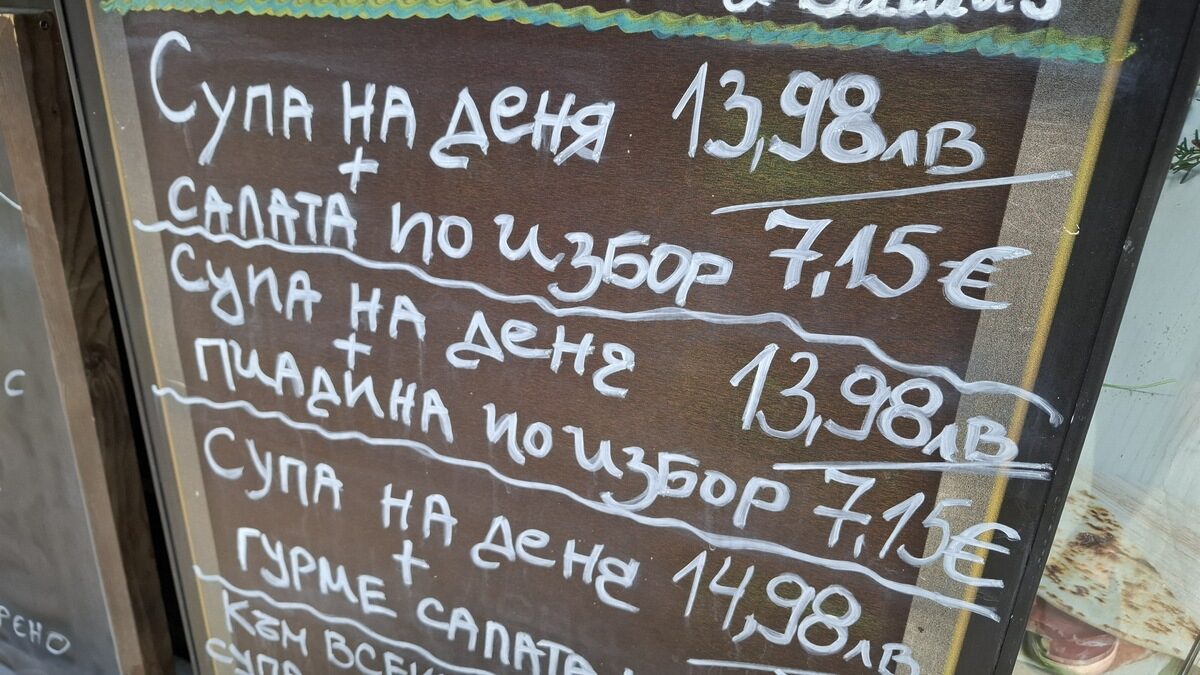 Супа на деня 13,98лв
+
салата по избор 7,15€
Супа на деня 13,98лв
+
пиадина по избор 7,15€
Супа на деня 14,98лв
+
гурме салата
Към
супа
с